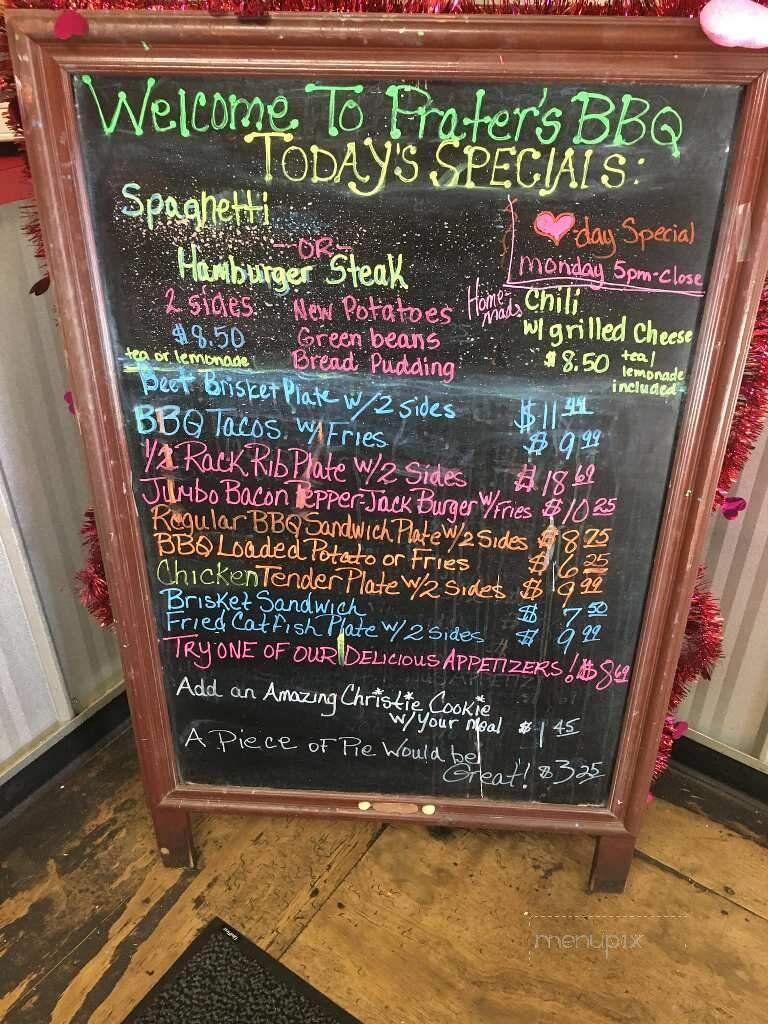 Welcome To Prater's BBQ
TODAY'S SPECIALS:
Spaghetti
-OR-
Hamburger Steak
2 sides
$8.50
tea or lemonade
New Potatoes
Green beans
Bread Pudding
-day Special
monday 5pm-Close
Home-made Chili
w/ grilled Cheese
$8.50 tea/
lemonade
included
Beef Brisket Plate w/2 Sides $11.44
BBQ Tacos w/Fries $9.99
1/2 Rack Rib Plate w/2 Sides $18.69
Jumbo Bacon Pepper-Jack Burger w/Fries $10.25
Regular BBQ Sandwich Plate w/2 Sides $8.75
BBQ Loaded Potato or Fries $6.25
Chicken Tender Plate w/2 Sides $9.99
Brisket Sandwich $7.50
Fried Catfish Plate w/2 sides $9.99
TRY ONE OF OUR DELICIOUS APPETIZERS! $8.69
Add an Amazing Christie Cookie
w/ your meal $1.45
A Piece of Pie Would be
Great! $3.25
menupix